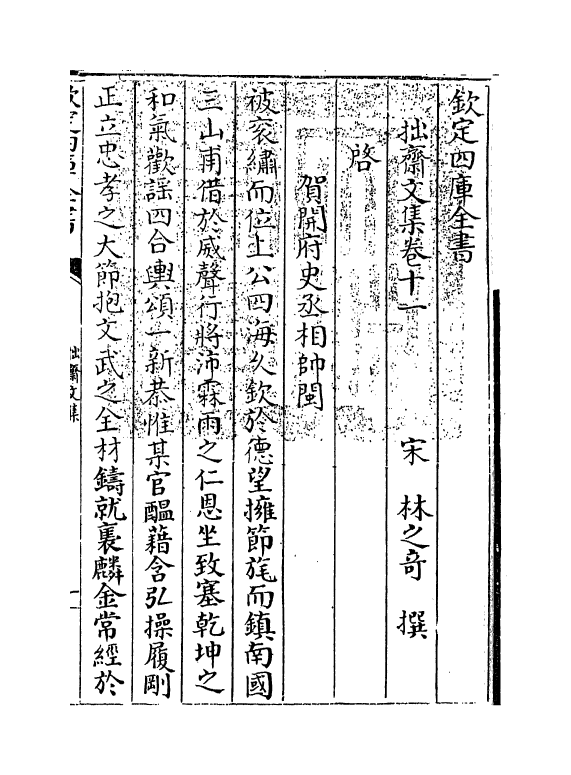 欽定四庫全書
拙齋文集卷十一
宋 林之奇 撰
啓
賀開府史丞相帥閩
被衮繡而位上公四海乆欽於德望擁節旄而鎮南國
三山甫借於威聲行將沛霖雨之仁恩坐致塞乾坤之
和氣歡謡四合輿頌一新恭惟某官醖藉含弘操履剛
正立忠孝之大節抱文武之全材鑄就褭麟金常經於
欽定四庫全書
拙齋文集